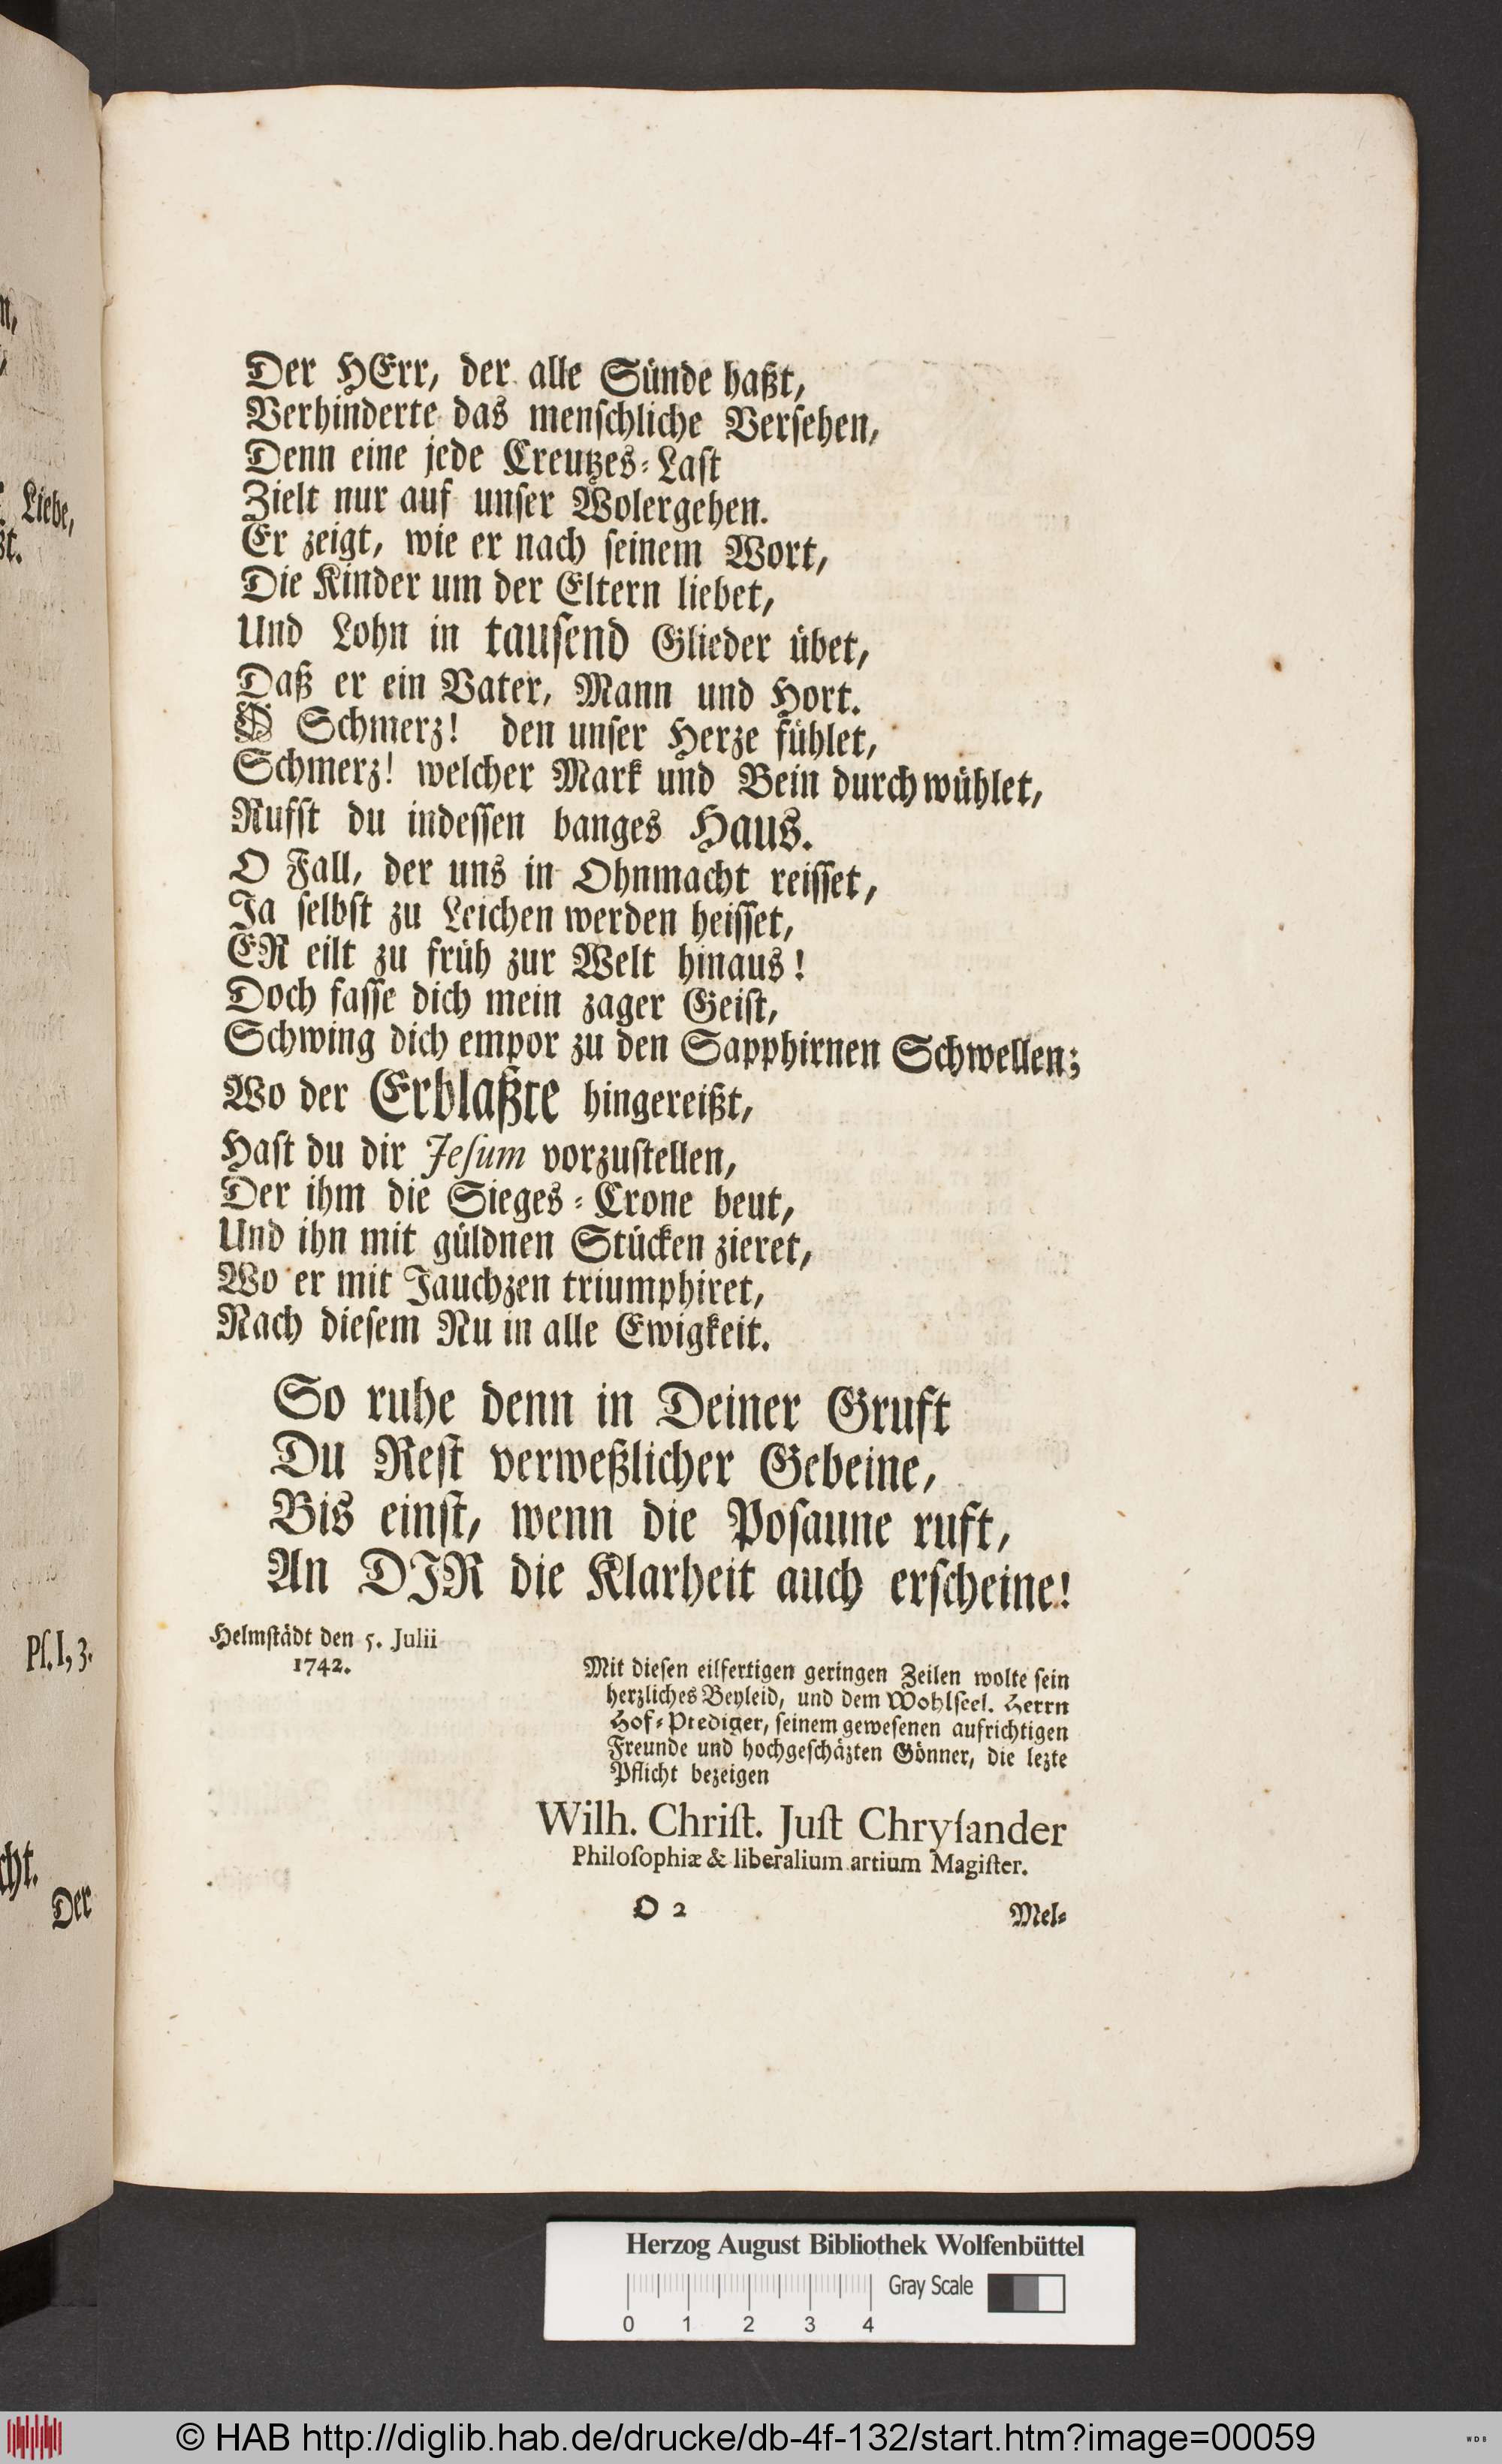 n,
Liebe,
st.
Ps. I, 3.
cht.
Der
Der HErr, der alle Sünde haßt,
Verhinderte das menschliche Versehen,
Denn eine jede Creutzes-Last
Zielt nur auf unser Wolergehen.
Er zeigt, wie er nach seinem Wort,
Die Kinder um der Eltern liebet,
Und Lohn in tausend Glieder übet,
Daß er ein Vater, Mann und Hort.
O Schmerz! den unser Herze fühlet,
Schmerz! welcher Mark und Bein durchwühlet,
Rufst du indessen banges Haus.
O Fall, der uns in Ohnmacht reisset,
Ja selbst zu Leichen werden heisset,
ER eilt zu früh zur Welt hinaus!
Doch fasse dich mein zager Geist,
Schwing dich empor zu den Sapphirnen Schwellen;
Wo der Erblaßte hingereißt,
Hast du dir Jesum vorzustellen,
Der ihm die Sieges-Crone beut,
Und ihn mit güldnen Stücken zieret,
Wo er mit Jauchzen triumphiret,
Nach diesem Nu in alle Ewigkeit.
So ruhe denn in Deiner Gruft
Du Rest verweßlicher Gebeine,
Bis einst, wenn die Posaune ruft,
An DIR die Klarheit auch erscheine!
Helmstädt den 5. Julii
1742.
Mit diesen eilfertigen geringen Zeilen wolte sein
herzliches Beyleid, und dem Wohlseel. Herrn
Hof-Prediger, seinem gewesenen aufrichtigen
Freunde und hochgeschäzten Gönner, die lezte
Pflicht bezeigen
Wilh. Christ. Just Chrysander
Philosophiæ & liberalium artium Magister.
O 2
Mel-
Herzog August Bibliothek Wolfenbüttel
Gray Scale
0 1 2 3 4
© HAB http://diglib.hab.de/drucke/db-4f-132/start.htm?image=00059
WDB